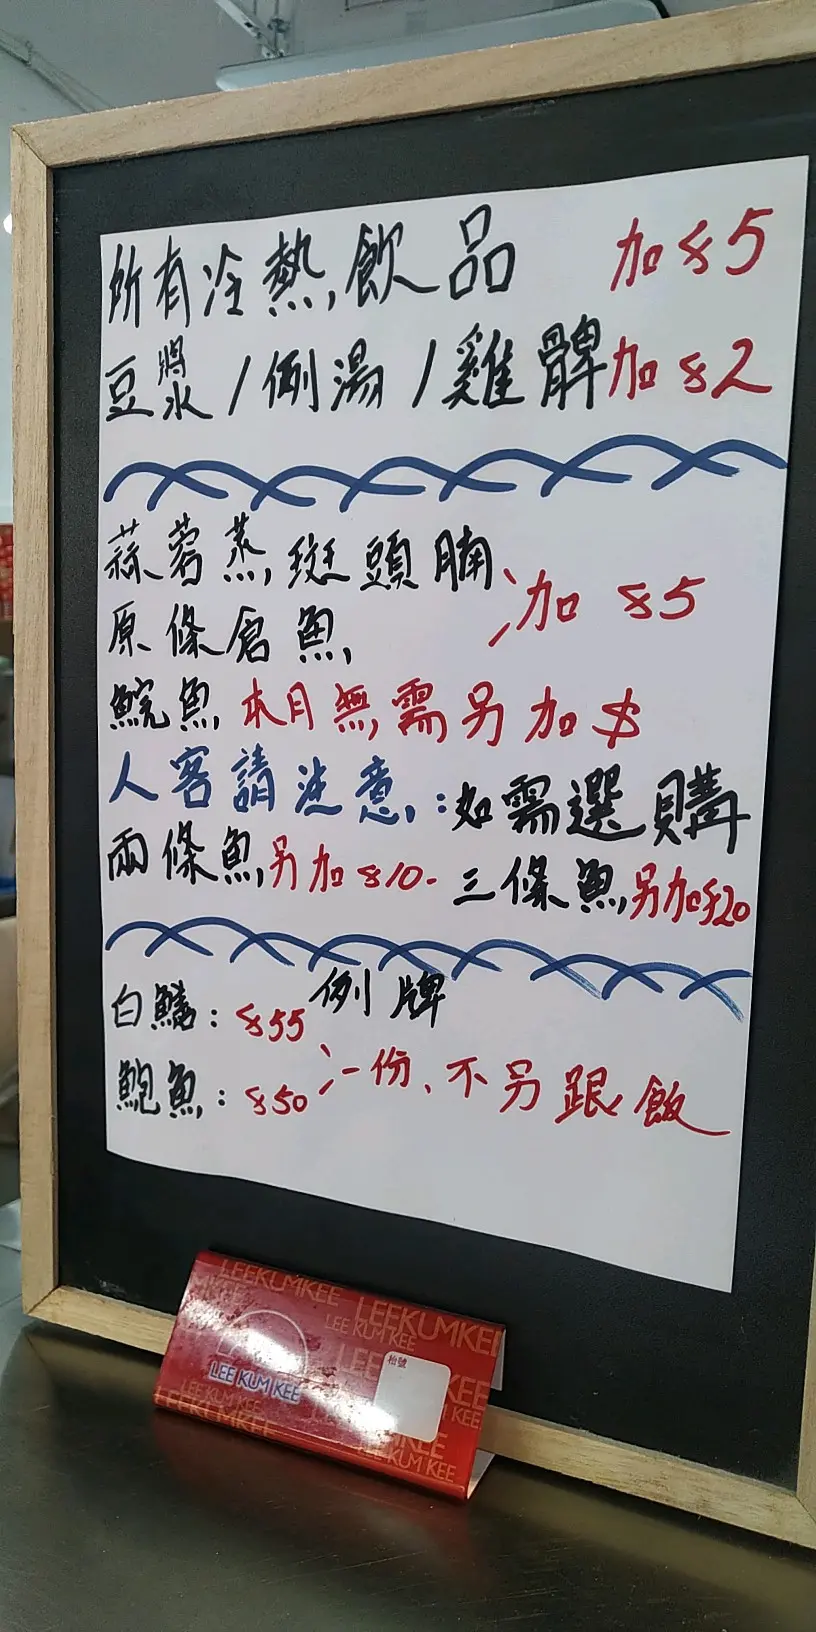 所有冷熱飲品 加$5
豆漿/例湯/雞髀加$2
蒜蓉蒸斑頭腩
原條倉魚 加$5
鯇魚本月無需另加$
人客請注意:如需選購
兩條魚另加$10- 三條魚另加$20
例牌
白鱔:$55
鮑魚:$50 一份、不另跟飯
LEE KUM KEE
枱號
LEEKUMKEE
LEEKUMKEE
LEE KUM KEE
LEE KUM KEE